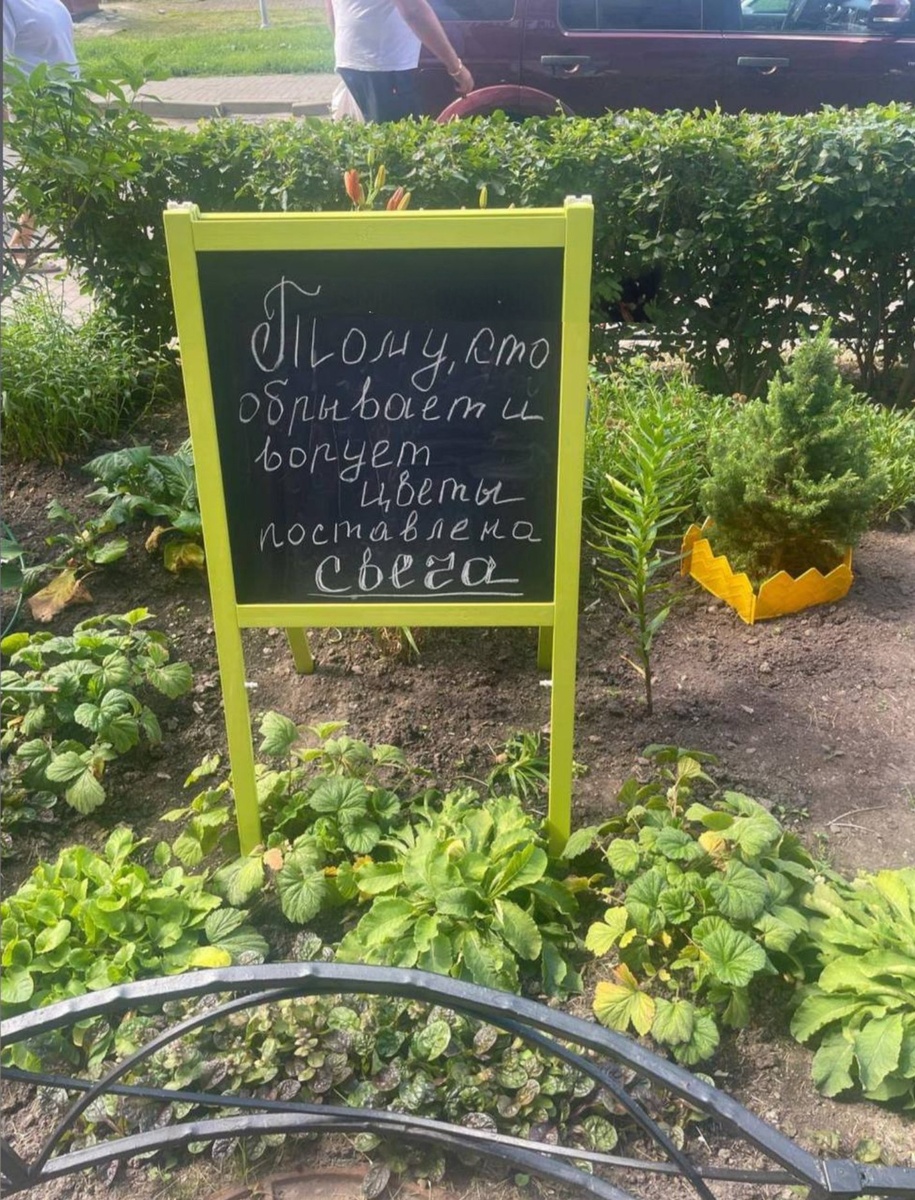 Тому, кто
обрывает и
ворует
цветы
поставлена
свеча